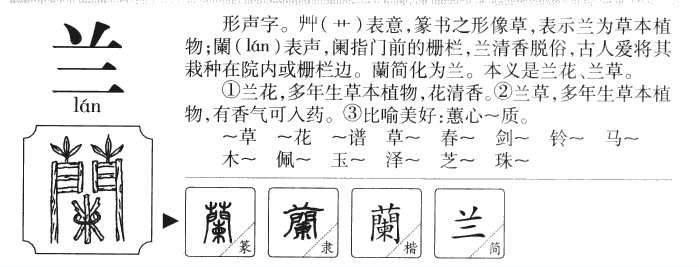 兰
lán
形声字。艸(艹)表意,篆书之形像草,表示兰为草本植
物;闌(lán)表声,阑指门前的栅栏,兰清香脱俗,古人爱将其
栽种在院内或栅栏边。蘭简化为兰。本义是兰花、兰草。
①兰花,多年生草本植物,花清香。②兰草,多年生草本植
物,有香气可入药。③比喻美好:蕙心～质。
～草 ～花 ～谱 草～ 春～ 剑～ 铃～ 马～
木～ 佩～ 玉～ 泽～ 芝～ 珠～
蘭 篆 蘭 隶 蘭 楷 兰 简